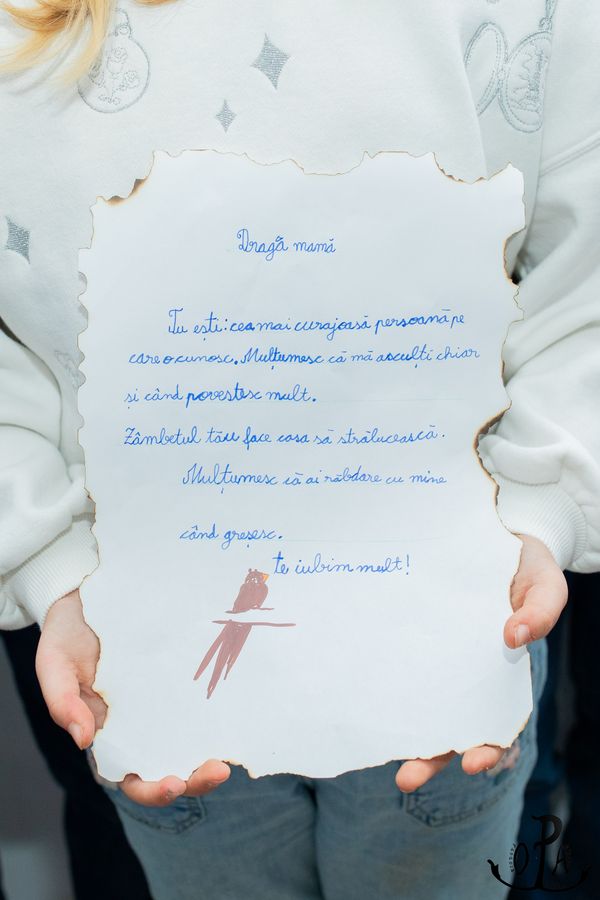 Dragă mamă
Tu ești: cea mai curajoasă persoană pe
care o cunosc. Mulțumesc că mă asculți chiar
și când povestesc mult.
Zâmbetul tău face casa să strălucească.
Mulțumesc că ai răbdare cu mine
când greșesc.
te iubim mult!